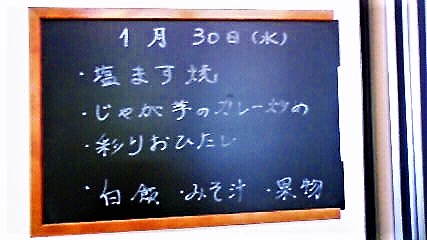 1月 30日(水)
・塩ます焼
・じゃが芋のカレー炒め
・彩りおひたし
・白飯 ・みそ汁 ・果物